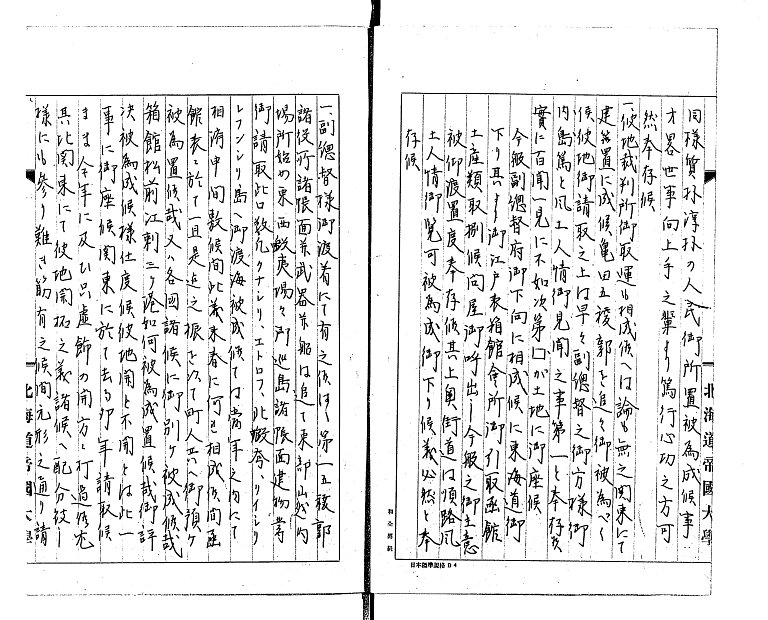 同様質朴淳朴の人民御所置被為成候事
才畧世事向上手之輩ゟ篤行心功之方可
然奉存候
一、彼地裁判所御取運も相成候へは論も無之関東にて
建置に成候亀田五稜郭を追々御被為べく
候彼地御請取之上は早々副総督之御方様御
内島為と風土人情御見聞之事第一と奉存候
実に百聞一見に不如次第が土地に御座候
今般副総督府御下向に相成候に東海道御
下り其ゟ御江戸表箱館会所御引取函館
土産類取捌候問屋御呼出し今般之御主意
被仰渡置度奉存候其上奥街道は順路風
土人情御覧可被為成御下り候義必然と奉
存候
北海道帝國大學
和全製紙
日本標準規格B4
一、副総督様御渡着にて有之候はゞ第一五稜郭
諸役所諸帳面并武器并船は追て東部山越内
場所始め東西蝦夷場々御巡島諸帳面建物等
御請取北口数九クナシリ、エトロフ、北蝦夷、リイシリ
レフンシリ島へ御渡海被成候ては当年之内にて
相済申間敷候間此義来春に何も相成候間函
館表に於て一旦是迄之振を以て町人共へ御預け
被為置候哉又は各国諸候に御別け被成候哉
箱館松前江刺三ヶ港如何被為成置候哉御評
決被為成候様仕度候彼地開と不開とは此一
事に御座候関東に於て去る卯年請取候
まま今年に及ひ只虚飾の開方と打過候尤
其比関東にて彼地開拓之義諸候へ配分致し
様にも参り難き筋有之候間元形之通り請
北海道帝國大學